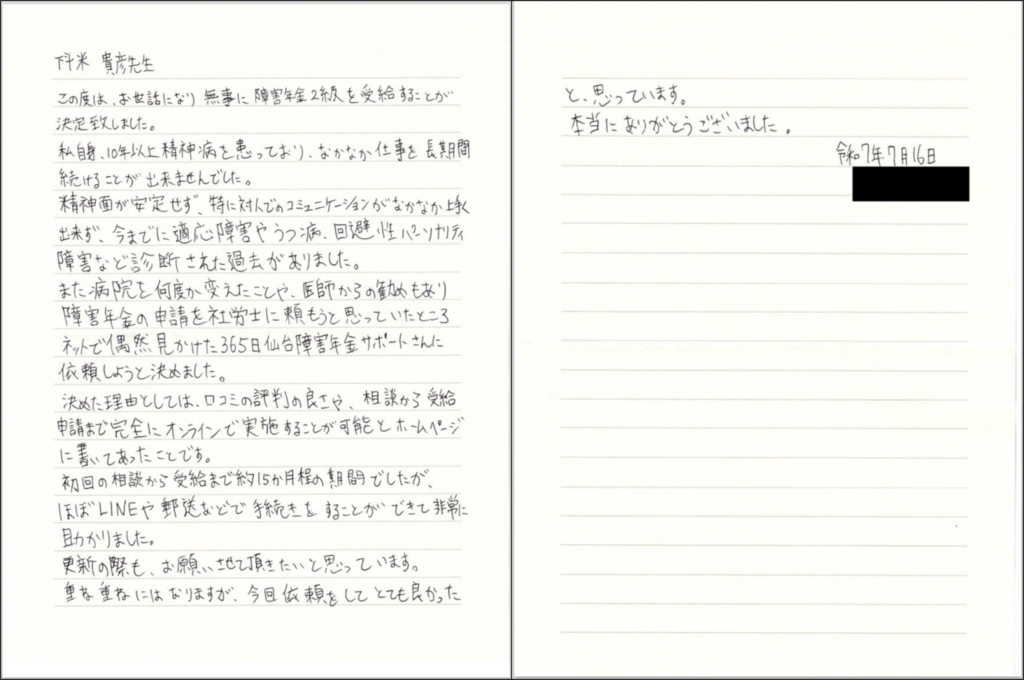 下斗米 貴彦先生
この度は、お世話になり 無事に 障害年金2級を受給することが
決定致しました。
私自身、10年以上精神病を患っており、なかなか仕事を 長期間
続けることが出来ませんでした。
精神面が安定せず、特に対人でのコミュニケーションがなかなか上手く
出来ず、今までに適応障害やうつ病、回避性パーソナリティ
障害など診断された過去がありました。
また病院を何度か変えたことや、医師からの勧めもあり
障害年金の申請を社労士に頼もうと思っていたところ
ネットで偶然見かけた365日仙台障害年金サポートさんに
依頼しようと決めました。
決めた理由としては、口コミの評判の良さや、相談から受給
申請まで完全にオンラインで実施することが可能とホームページ
に書いてあったことです。
初回の相談から受給まで約15か月程の期間でしたが、
ほぼLINEや郵送などで手続きをすることができて非常に
助かりました。
更新の際も、お願いさせて頂きたいと思っています。
重ね重ねにはなりますが、今回依頼をしてとても良かった
と、思っています。
本当にありがとうございました。
令和7年7月16日